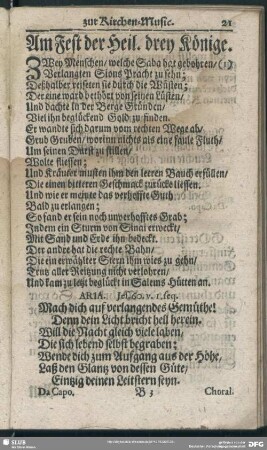 zur Kirchen-Music. 21
Am Fest der Heil. drey Könige.
ZWey Menschen / welche Saba hat gebohren / (1)
Verlangten Sions Pracht zu sehn;
Deßhalber reisten sie durch die Wüsten;
Der eine ward bethört von seinen Lüsten /
Und dachte in der Berge Gründen /
Viel ihn beglückend Gold zu finden.
Er wandte sich darum vom rechten Wege ab /
Grub Gruben / worinn nichts als eine faule Fluth /
Um seinen Durst zu stillen /
Wolte fliessen;
Und Kräuter musten ihm den leeren Bauch erfüllen /
Die einen bitteren Geschmack zurücke liessen.
Und wie er meynte das verhoffte Guth
Bald zu erlangen;
So fand er sein noch unverhofftes Grab;
Indem ein Sturm von Sinai erweckt /
Mit Sand und Erde ihn bedeckt.
Der andre hat die rechte Bahn /
Die ein erwählter Stern ihm wies zu gehn /
Trutz aller Reitzung nicht verlohren /
Und kam zu letzt beglückt in Salems Hütten an.
ARIA. Jes. 60. v. 1. seq.
Mach dich auf verlangendes Gemüthe!
Denn dein Licht bricht hell herein.
Will die Nacht gleich viele laben,
Die sich lebend selbst begraben;
Wende dich zum Aufgang aus der Höhe,
Laß den Glantz von dessen Güte,
Eintzig deinen Leitstern seyn.
Da Capo. B 3 Choral.
SLUB